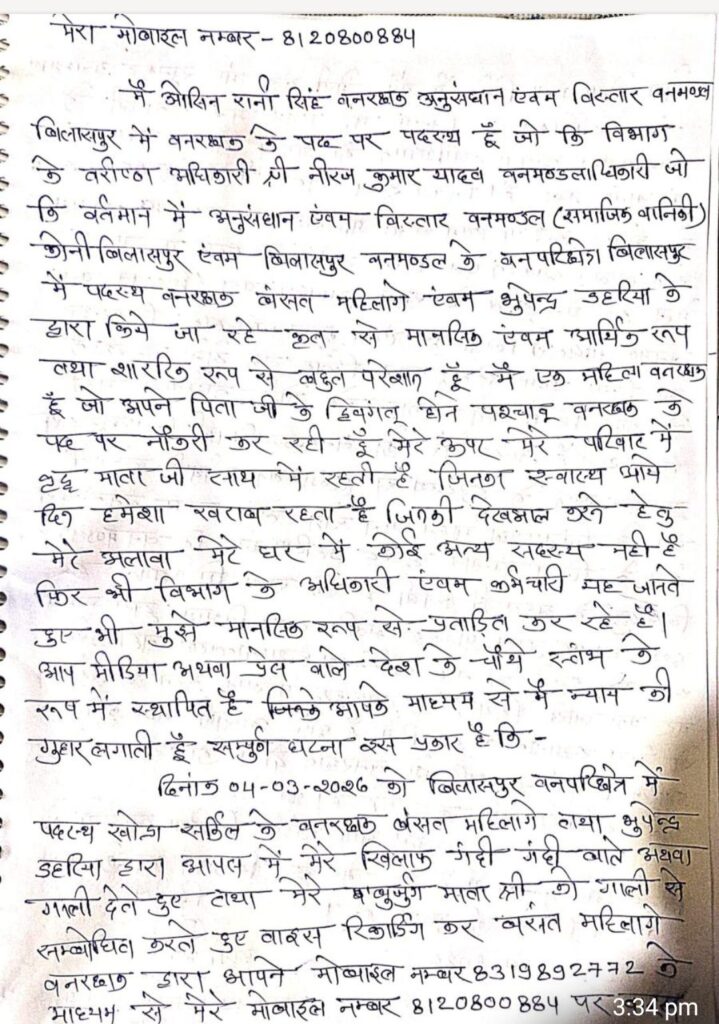 मेरा मोबाइल नम्बर - 8120800884
मैं ओसिन रानी सिंह वनरक्षक अनुसंधान एंवम विस्तार वनमण्डल
बिलासपुर में वनरक्षक के पद पर पदस्थ हूँ जो कि विभाग
के वरीष्ठ अधिकारी श्री नीरज कुमार यादव वनमण्डलाधिकारी जो
कि वर्तमान में अनुसंधान एंवम विस्तार वनमण्डल (समाजिक वानिकी)
कोनी बिलासपुर एंवम बिलासपुर वनमण्डल के वनपरिक्षेत्र बिलासपुर
में पदस्थ वनरक्षक बंसत महिलागे एंवम भुपेन्द्र डहरिया के
द्वारा किये जा रहे कृत से मानसिक एंवम आर्थिक रूप
तथा शाररिक रूप से बहुत परेशान हूँ मैं एक महिला वनरक्षक
हूँ जो अपने पिता जी के दिवंगत होने पश्चात् वनरक्षक के
पद पर नौकरी कर रही हूँ मेरे ऊपर मेरे परिवार में
वृद्ध माता जी साथ में रहती है जिनका स्वास्थ आये
दिन हमेशा खराब रहता है जिनकी देखभाल करने हेतु
मेरे अलावा मेरे घर में कोई अन्य सदस्य नही है
फिर भी विभाग के अधिकारी एंवम कर्मचारी यह जानते
हुए भी मुझे मानसिक रूप से प्रताड़ित कर रहे है।
आप मीडिया अथवा प्रेस वाले देश के चौथे स्तंभ के
रूप में स्थापित है जिनके आपके माध्यम से मैं न्याय की
गुहार लगाती हूँ सम्पुर्ण घटना इस प्रकार है कि -
दिनांक 04-03-2026 को बिलासपुर वनपरिक्षेत्र में
पदस्थ खोन्द्रा सर्किल के वनरक्षक बंसत महिलागे तथा भुपेन्द्र
डहरिया द्वारा आपस में मेरे खिलाफ गंदी गंदी बाते अथवा
गाली देते हुए तथा मेरे बुजुर्ग माता श्री को गाली से
सम्बोधित करते हुए वाइस रिकार्डिंग कर बसंत महिलागे
वनरक्षक द्वारा आपने मोबाइल नम्बर 8319892772 के
माध्यम से मेरे मोबाइल नम्बर 8120800884 पर
3:34 pm